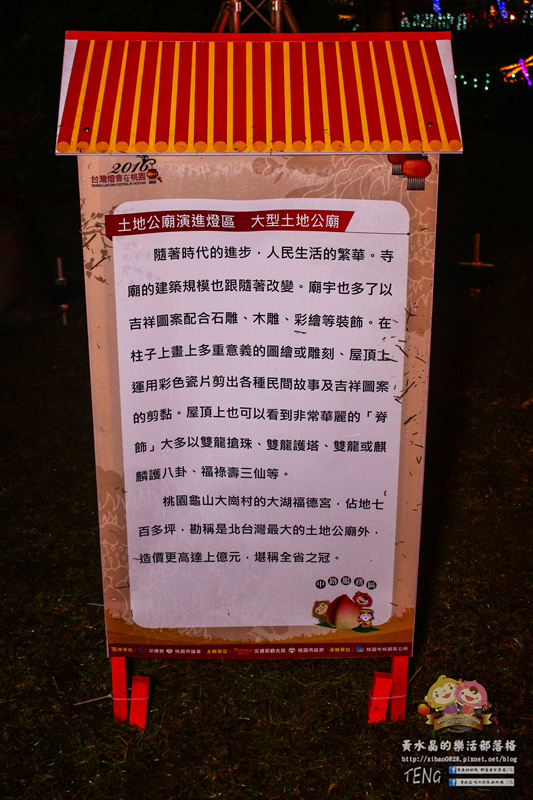 2016
台灣燈會在桃園
TAIWAN LANTERN FESTIVAL IN TAOYUAN
土地公廟演進燈區 大型土地公廟
隨著時代的進步，人民生活的繁華。寺
廟的建築規模也跟隨著改變。廟宇也多了以
吉祥圖案配合石雕、木雕、彩繪等裝飾。在
柱子上畫上多重意義的圖繪或雕刻、屋頂上
運用彩色瓷片剪出各種民間故事及吉祥圖案
的剪黏。屋頂上也可以看到非常華麗的「脊
飾」大多以雙龍搶珠、雙龍護塔、雙龍或麒
麟護八卦、福祿壽三仙等。
桃園龜山大崗村的大湖福德宮，佔地七
百多坪，勘稱是北台灣最大的土地公廟外，
造價更高達上億元，堪稱全省之冠。
中路服務區
指導單位： 交通部 桃園市議會 主辦單位： 交通部觀光局 桃園市政府 承辦單位： 桃園市桃園區公所
黃水晶的樂活部落格
http://sihan0828.pixnet.net/blog
TENG